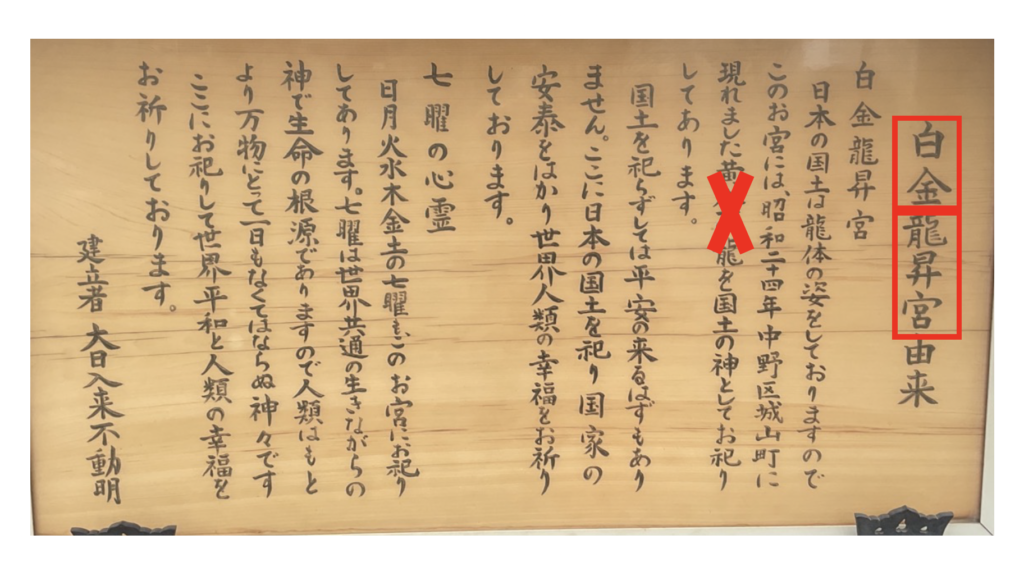 白金龍昇宮由来
白金龍昇宮
日本の国土は龍体の姿をしておりますので
このお宮には、昭和二十四年中野区城山町に
現れました黄龍を国土の神としてお祀り
してあります。
国土を祀らずしては平安の来るはずもあり
ません。ここに日本の国土を祀り国家の
安泰をはかり世界人類の幸福をお祈り
しております。
七曜の心霊
日月火水木金土の七曜をこのお宮にお祀り
してあります。七曜は世界共通の生きながらの
神で生命の根源でありますので人類はもと
より万物にとって一日もなくてはならぬ神々です
ここにお祀りして世界平和と人類の幸福を
お祈りしております。
建立者 大日入来不動明